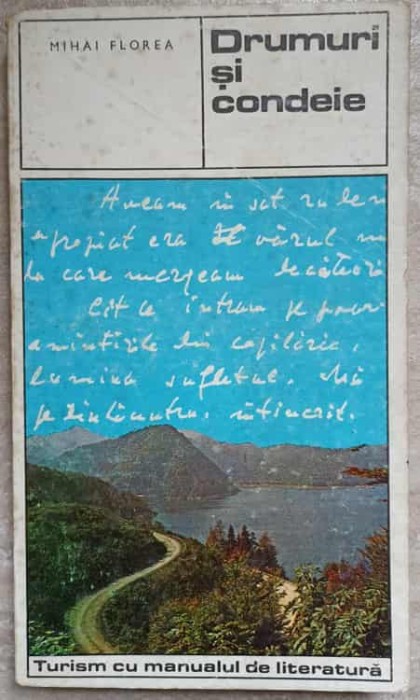 MIHAI FLOREA
Drumuri
și
condeie
Aveam în sat un
apropiat era văzul
la care mergeam
Cît ce intram pe
amintirile din copilărie,
lumina sufletul. Mă
întinerit.
Turism cu manualul de literatură